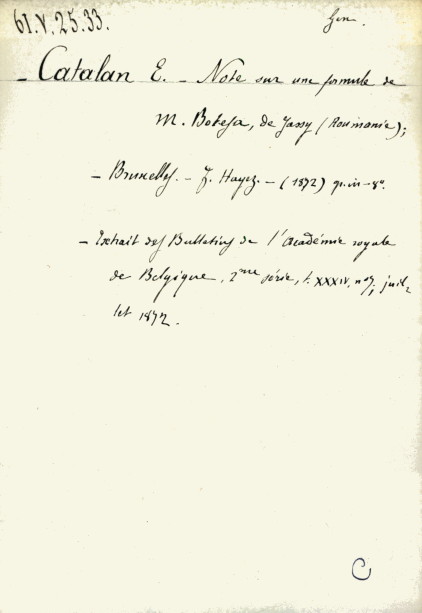 61.V.25.33.
Gen.
- Catalan E. - Note sur une formule de
M. Botesa, de Jassy (Roumanie);
- Bruxelles. - F. Hayez. - (1872) in-8°.
- Extrait des Bulletins de l'Académie royale
de Belgique, 2me série, t. XXXIV, n° 7, juil-
let 1872.
C